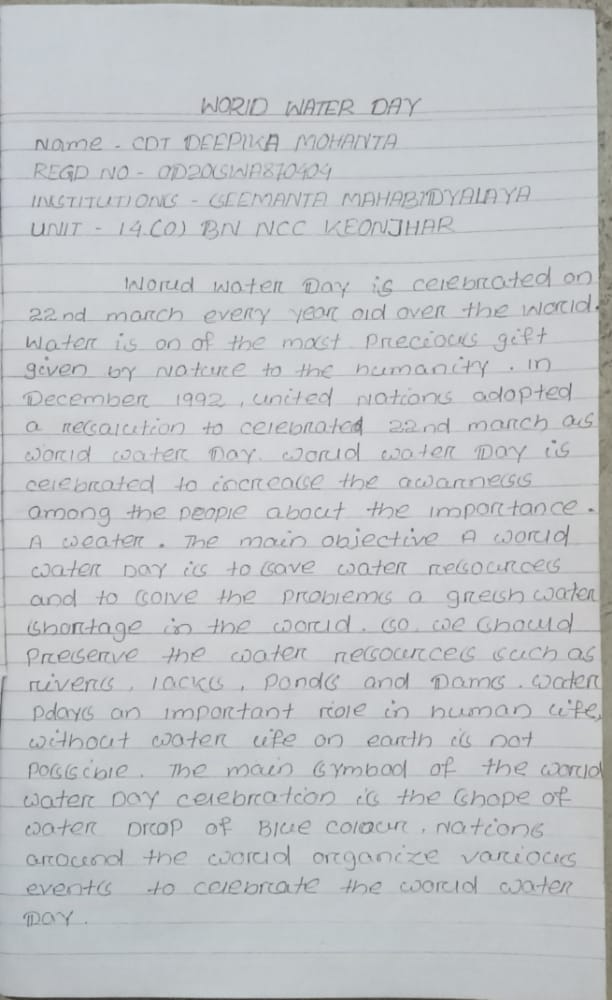 WORLD WATER DAY
Name - CDT DEEPIKA MOHANTA
REGD NO - OD20SWA870404
INSTITUTIONS - SEEMANTA MAHABIDYALAYA
UNIT - 14(O) BN NCC KEONJHAR
World water Day is celebrated on
22nd march every year old over the world.
Water is on of the most precious gift
given by Nature to the humanity. in
December 1992, united Nations adopted
a resalution to celebrated 22nd march as
world water Day. world water Day is
celebrated to increase the awarness
among the people about the importance.
A weater. The main objective A world
water Day is to save water ressources
and to solve the problems a gresh water
shortage in the world. so we should
preserve the water ressources such as
rivers, lacks, ponds and Dams. water
pdays an important role in human life,
without water life on earth is not
possible. The main symbod of the world
water Day celebration is the shope of
water Drop of Blue colour. Nations
around the world organize various
events to celebrate the world water
DAY.